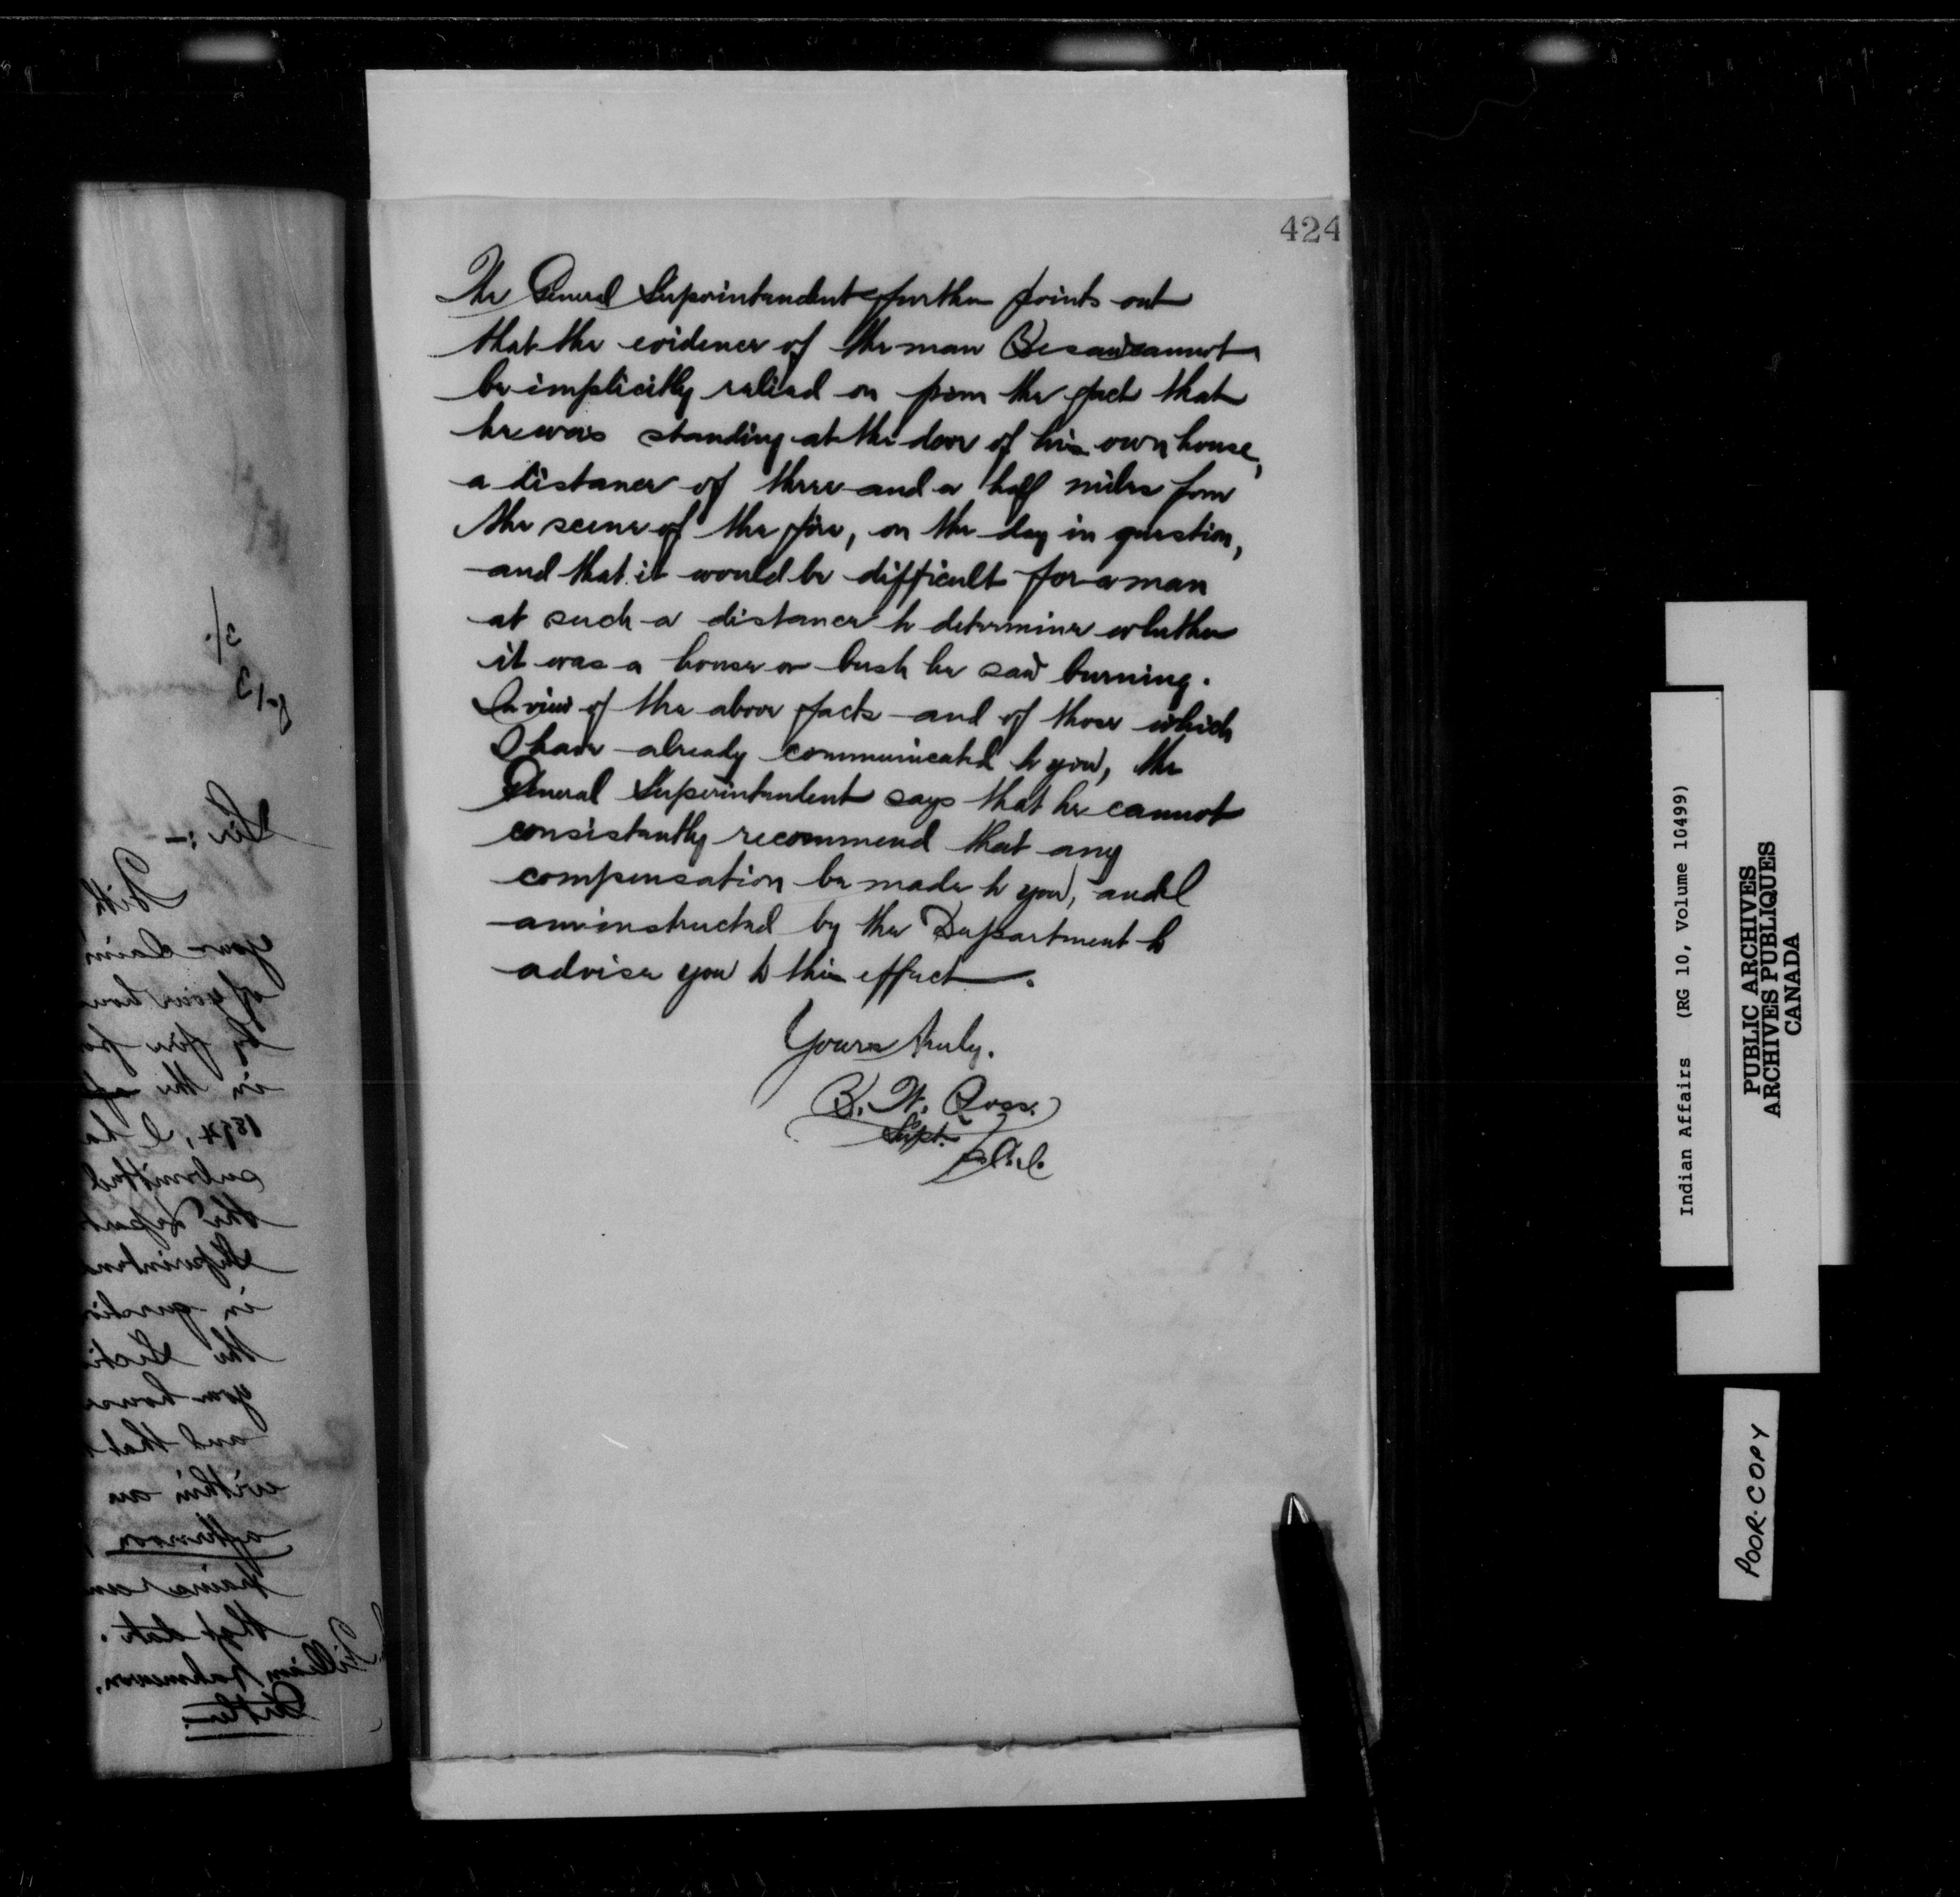 424
The General Superintendent further points out
that the evidence of the man Besaw cannot
be implicitly relied on from the fact that
he was standing at the door of his own house,
a distance of three and a half miles from
the scene of the fire, on the day in question,
and that it would be difficult for a man
at such a distance to determine whether
it was a house or bush he saw burning.
In view of the above facts and of those which
I have already communicated to you, the
General Superintendent says that he cannot
consistantly recommend that any
compensation be made to you, and I
am instructed by the Department to
advise you to this effect.
Yours truly.
Ross.
Supt.
Sir :-
With
your claim
of your hou
by fire
in the
1894, I ha
submitted
the Depart
Superinten
in question
the Secti
you house
and that
within an
afternoon
that date.
William
Indian Affairs (RG 10, Volume 10499)
PUBLIC ARCHIVES
ARCHIVES PUBLIQUES
CANADA
POOR COPY